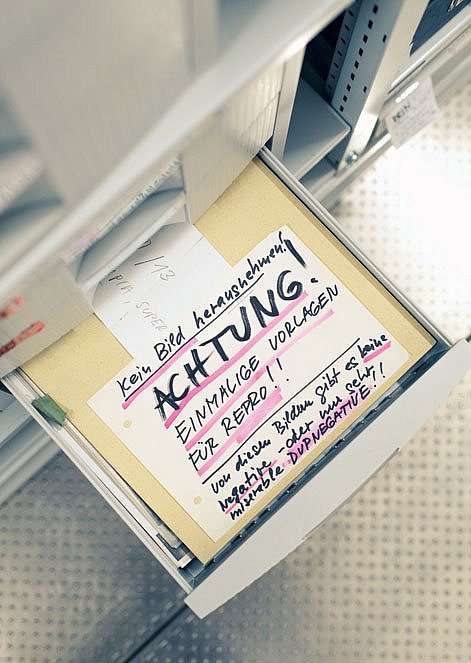 /13
SUPER
Kein Bild herausnehmen!
ACHTUNG!
EINMALIGE VORLAGEN
FÜR REPRO!!
von diesen Bildern gibt es keine
Negative - oder nur sehr
miserable DUPNEGATIVE!!